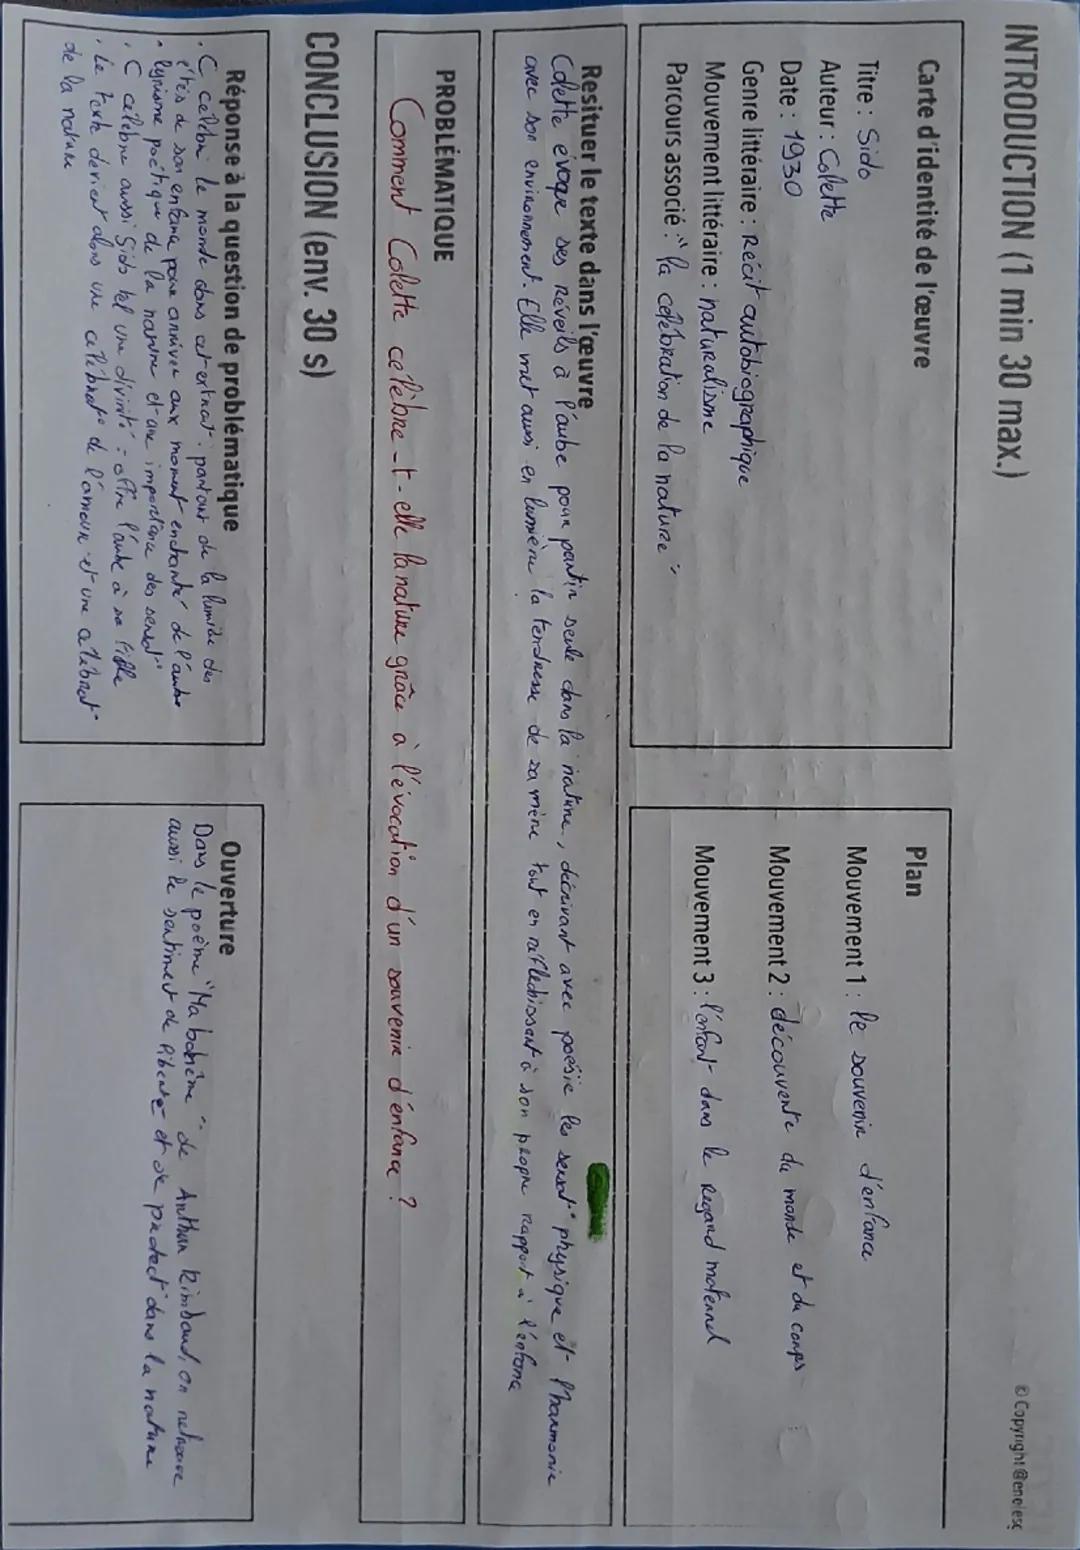 INTRODUCTION (1 min 30 max.)
© Copyright @enelesc
Carte d'identité de l'œuvre
Titre : Sido
Auteur : Colette
Date : 1930
Genre littéraire : Récit autobiographique
Mouvement littéraire : naturalisme
Parcours associé : "la célébration de la nature"
Plan
Mouvement 1 : le souvenir d'enfance
Mouvement 2 : découverte du monde et du corps
Mouvement 3 : l'enfant dans le regard maternel
Resituer le texte dans l'œuvre
Colette évoque ses réveils à l'aube pour partir seule dans la nature, décrivant avec poésie les sensat° physique et l'harmonie
avec son environnement. Elle met aussi en lumière la tendresse de sa mère tout en réfléchissant à son propre rapport à l'enfance
PROBLÉMATIQUE
Comment Colette célèbre-t-elle la nature grâce à l'évocation d'un souvenir d'enfance ?
CONCLUSION (env. 30 s)
Réponse à la question de problématique
. C célèbre le monde dans cet extrait : partant de la lumière des
étés de son enfance pour arriver aux moment enchanté de l'aube
. lyrisme poétique de la nature et une importance des sensat°
. C célèbre aussi Sido tel une divinité : offre l'aube à sa fille
. Le texte devient alors une célébrat° de l'amour et une célébrat°
de la nature
Ouverture
Dans le poème "Ma bohème" de Arthur Rimbaud, on retrouve
aussi le sentiment de liberté et de protect° dans la nature